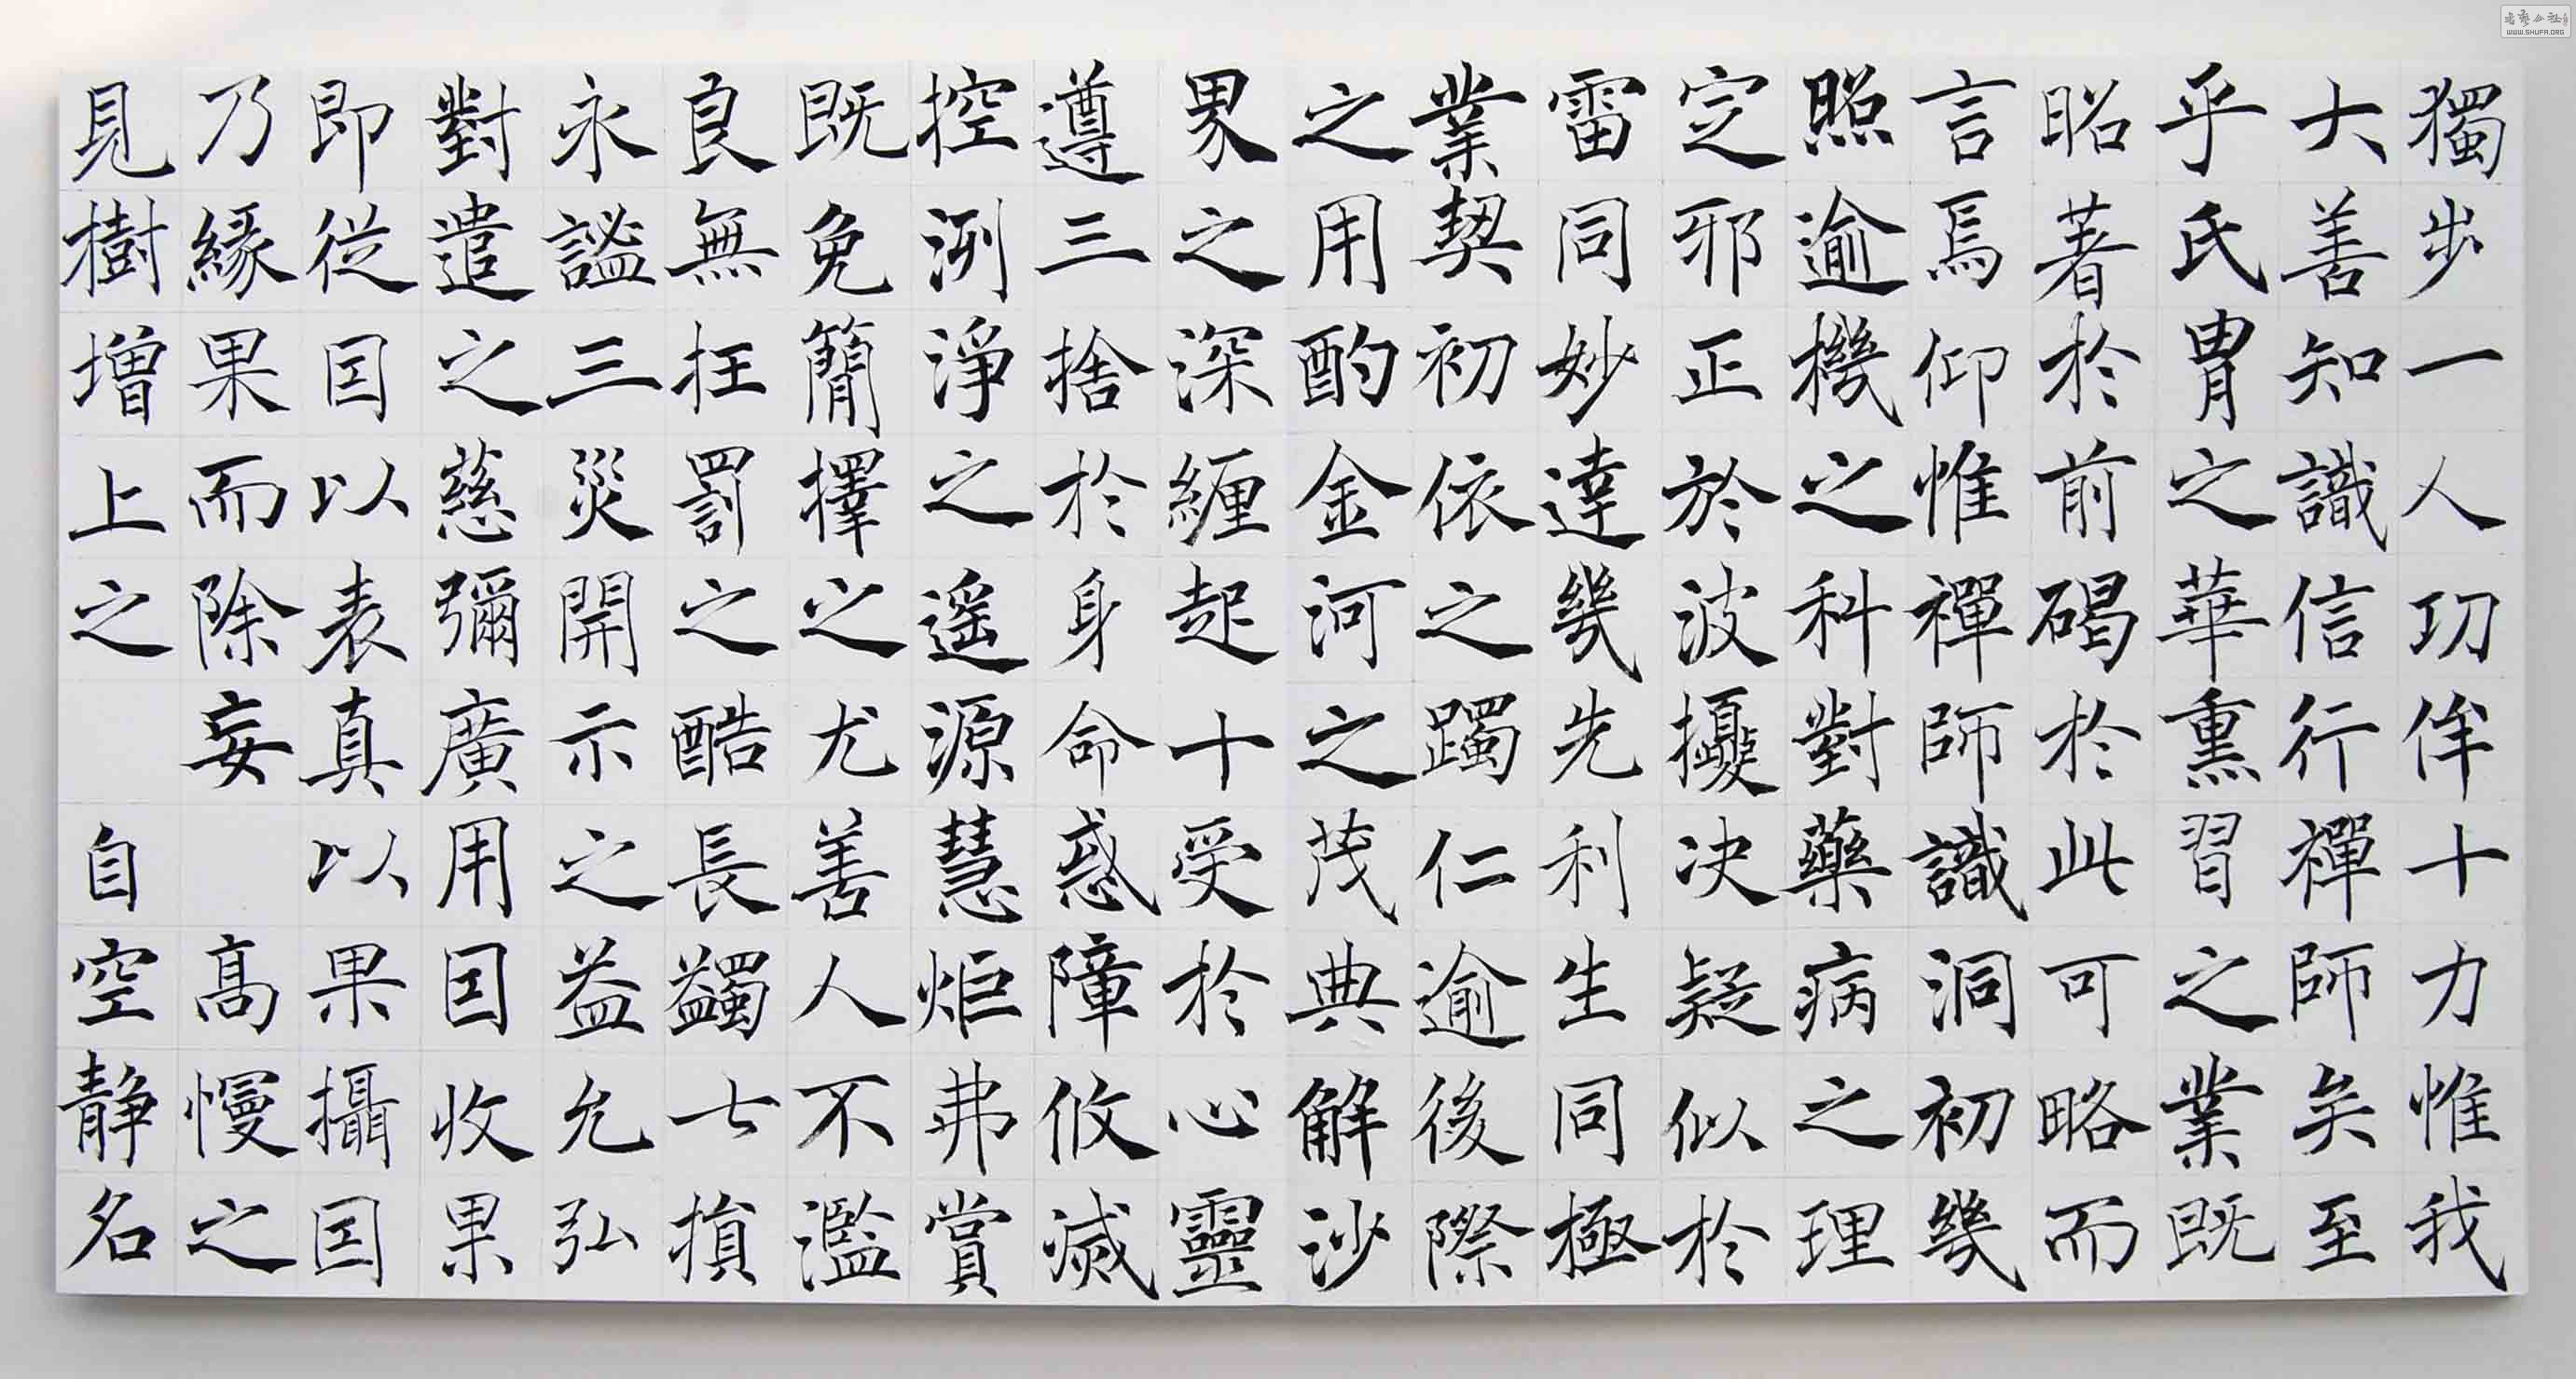 獨步一人功侔十力惟我
大善知識信行禪師矣至
乎氏胄之華熏習之業既
昭著於前碣於此可略而
言焉仰惟禪師識洞初幾
照逾機之科對藥病之理
定邪正於波擾决疑似於
雷同妙達幾先利生同極
業契初依之躅仁逾後際
之用酌金河之茂典解沙
界之深纏起十受於心靈
遵三捨於身命惑障攸滅
控洌淨之遥源慧炬弗賞
既免簡擇之尤善人不濫
良無抂罰之酷長蠲士損
永謐三災開示之益允弘
對遣之慈彌廣用囙收果
即從囙以表真以果攝囙
乃緣果而除妄 高慢之
見樹增上之 自空静名
WWW.SHUFA.ORG